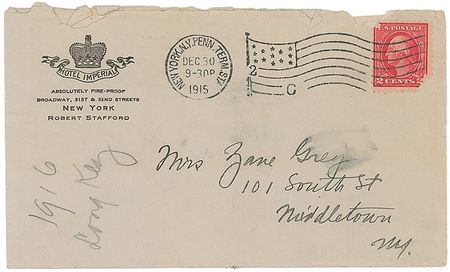 HOTEL IMPERIAL
ABSOLUTELY FIRE-PROOF
BROADWAY, 31ST & 32ND STREETS
NEW YORK
ROBERT STAFFORD
NEW YORK, N.Y. PENN. TERM. STA.
DEC 30
9-30P
1915
2
C
U.S. POSTAGE
2 CENTS 2
Mrs Zane Grey
101 South St
Middletown
Ny.
1916
Long Key